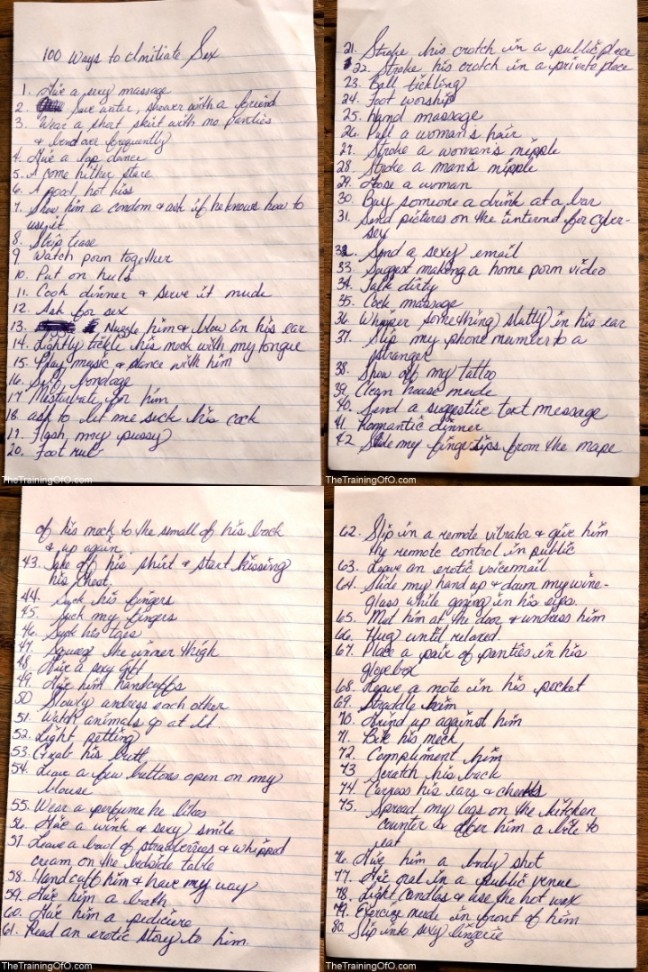 100 Ways to Initiate Sex
1. Give a sexy massage
2. Save water, shower with a friend
3. Wear a short skirt with no panties
& bend over frequently
4. Give a lap dance
5. A come hither stare
6. A good, hot kiss
7. Show him a condom & ask if he knows how to
use it
8. Strip tease
9 Watch porn together
10. Put on heels
11. Cook dinner & serve it nude
12. Ask for sex
13. Nuzzle him & blow in his ear
14. Lightly tickle his neck with my tongue
15. Play music & dance with him
16. Self bondage
17 Masturbate for him
18. ask to let me suck his cock
19. Flash my pussy
20. Foot rub
TheTrainingOfO.com
21. Stroke his crotch in a public place
22. Stroke his crotch in a private place
23. Ball tickling
24. Foot worship
25. Hand massage
26. Pull a woman's hair
27. Stroke a woman's nipple
28. Stroke a man's nipple
29. a woman
30. Buy someone a drink at a bar
31. Send pictures on the internet for cyber-
sex
32. Send a sexy email
33 Suggest making a home porn video
34. Talk dirty
35. Cock massage
36. Whisper something slutty in his ear
37. Slip my phone number to a
stranger
38. Show off my tattoo
39. Clean house nude
40. Send a suggestive text message
41. Romantic dinner
42 Slide my fingertips from the nape
TheTrainingOfO.com
of his neck to the small of his back
& up again
43. Take off his shirt & start kissing
his chest.
44. Suck his fingers
45. Suck my fingers
46. Suck his toes
47. Squeeze the inner thigh
48 Give a sexy gift
49. Give him handcuffs
50 Slowly undress each other
51. Watch animals go at it
52. Light petting
53. Grab his butt
54. Leave a few buttons open on my
blouse
55. Wear a perfume he likes
56. Give a wink & sexy smile
57. Leave a bowl of strawberries & whipped
cream on the bedside table
58. Handcuff him & have my way
59. Give him a bath
60. Give him a pedicure
61. Read an erotic story to him
TheTrainingOfO.com
62. Slip in a remote vibrator & give him
the remote control in public
63. Leave an erotic voicemail
64. Slide my hand up & down my wine-
glass while gazing in his eyes.
65. Meet him at the door & undress him
66. Hug until relaxed
67. Place a pair of panties in his
glovebox
68. Leave a note in his pocket
69. Straddle him
70. Grind up against him
71. Bite his neck
72. Compliment him
73 Scratch his back
74. Caress his ears & cheeks
75. Spread my legs on the kitchen
counter & offer him a bite to
eat
76. Give him a body shot
77. Give oral in a public venue
78. Light candles & use the hot wax
79. Exercise nude in front of him
80. Slip into sexy lingerie
TheTrainingOfO.com